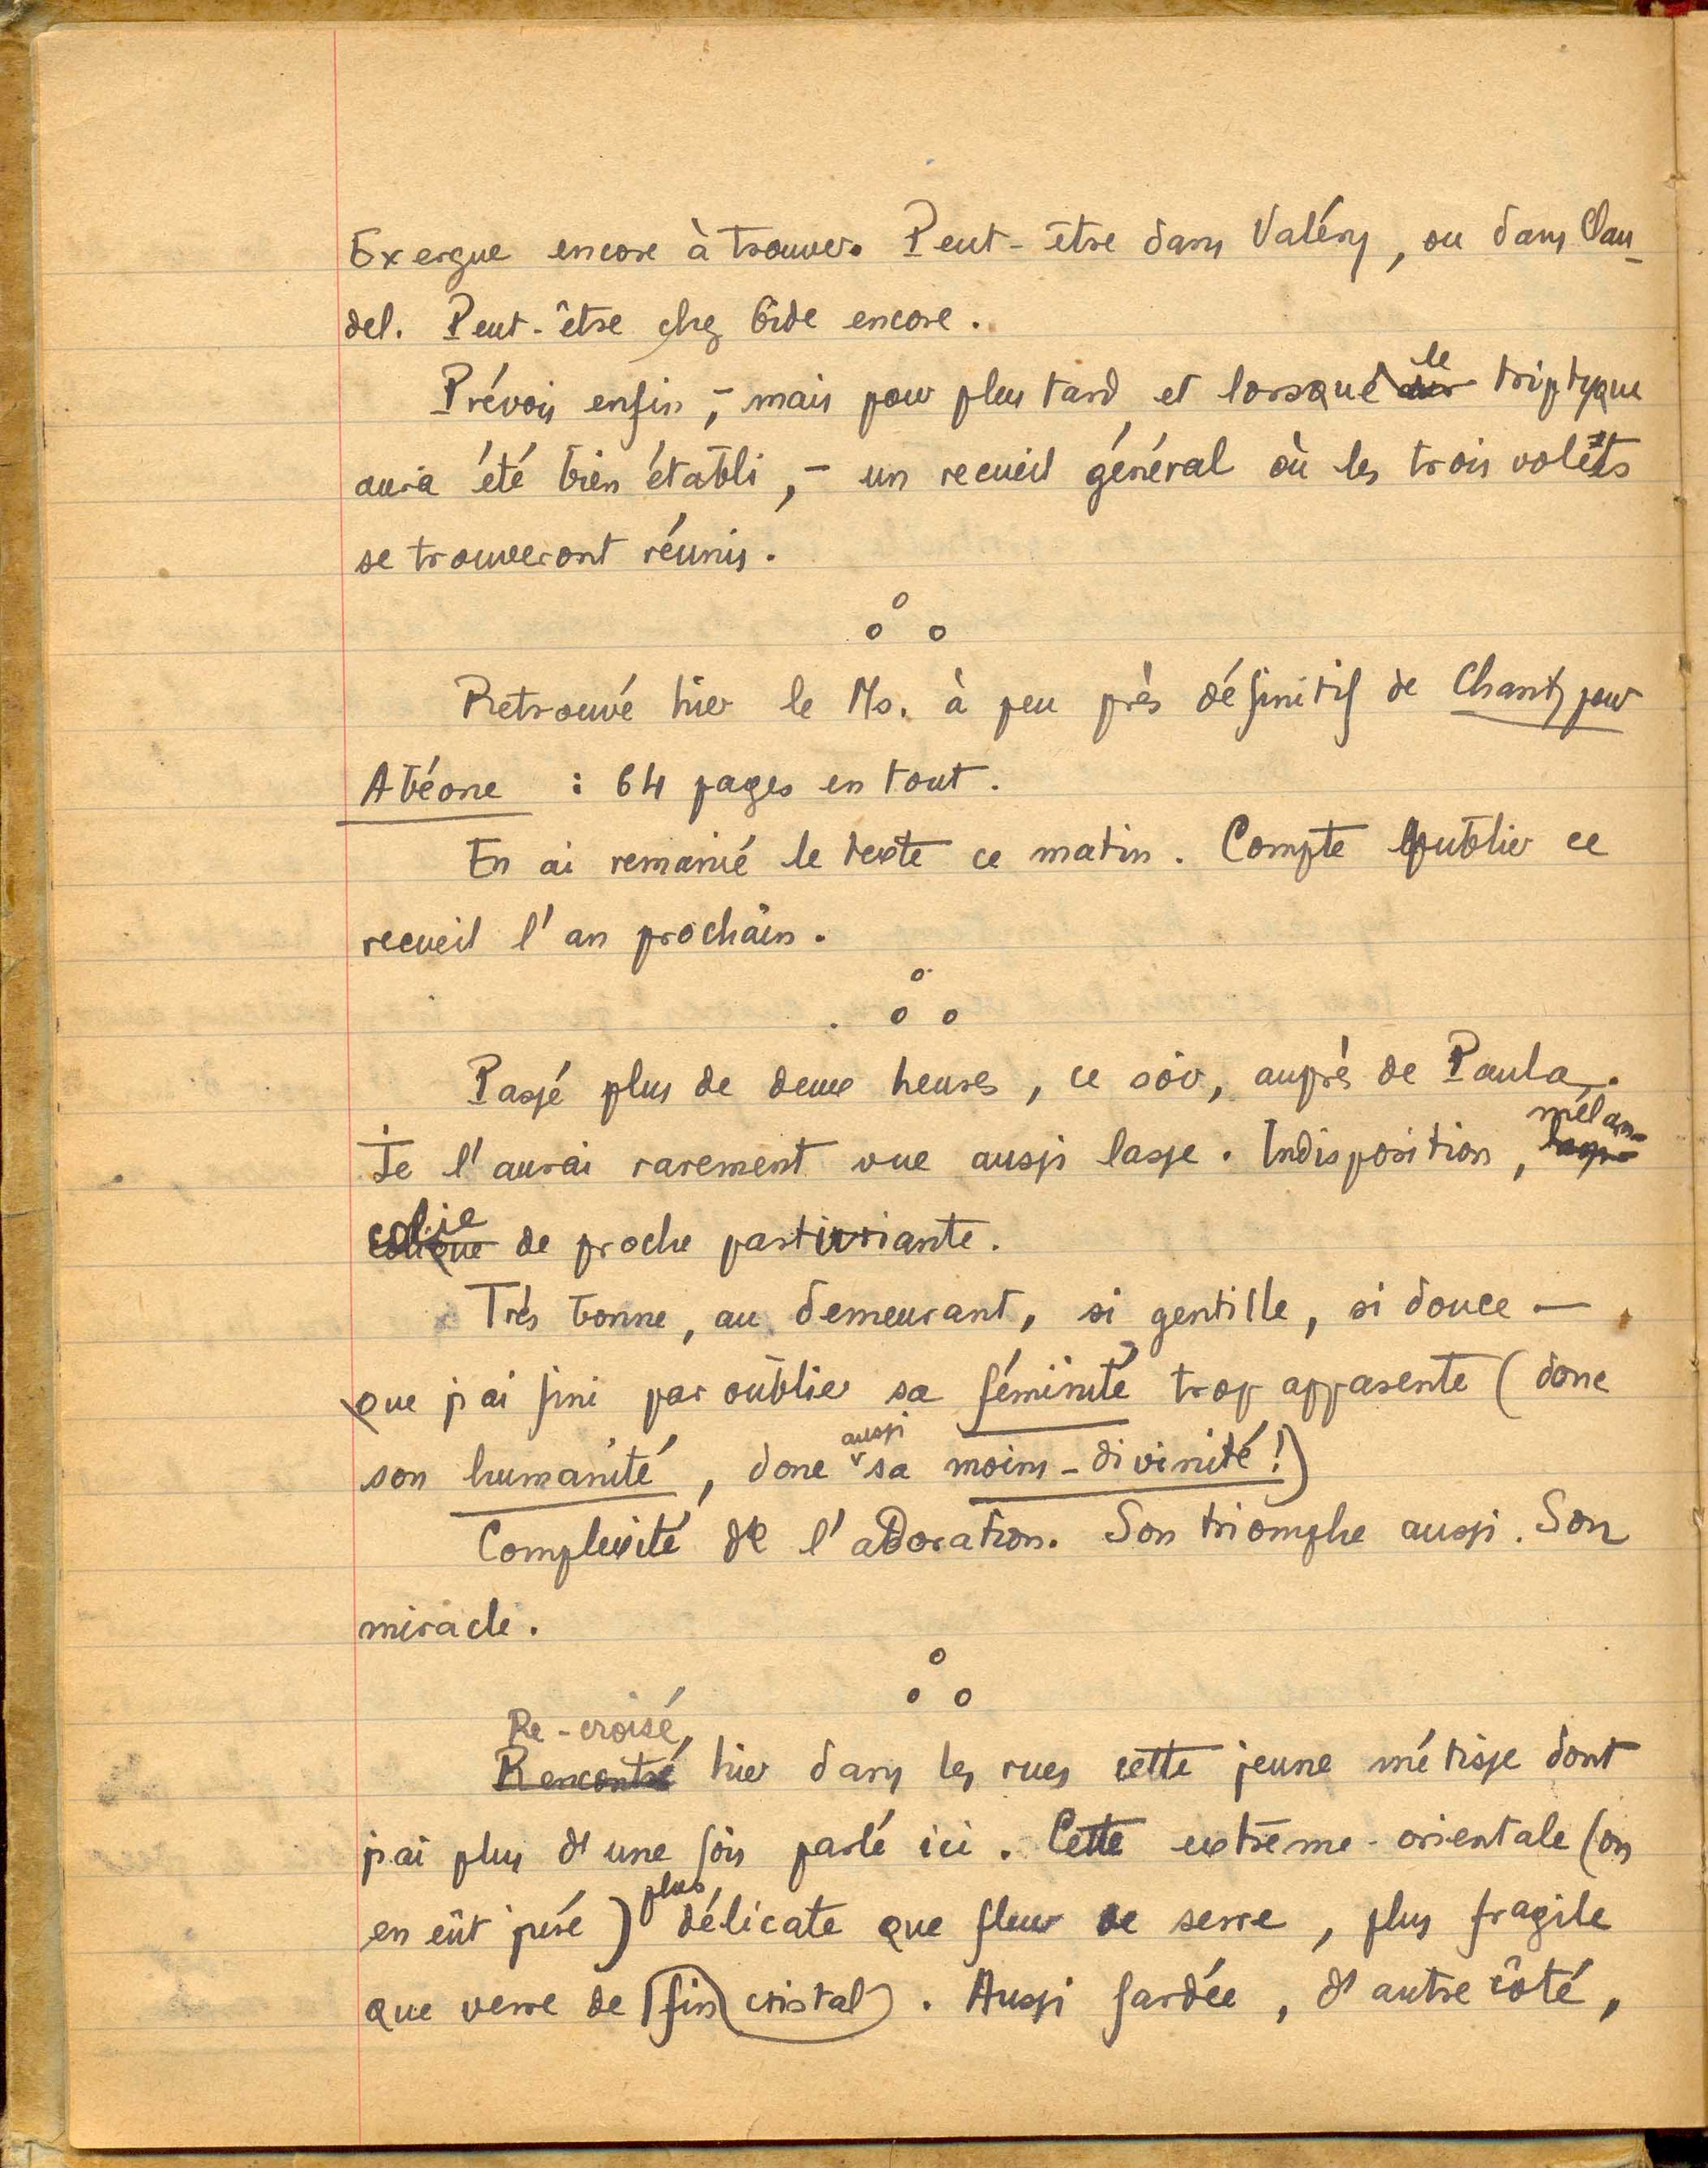 Exergue encore à trouver. Peut-être dans Valéry, ou dans Clau-
del. Peut-être chez Gide encore.
Prévois enfin, - mais pour plus tard et lorsque le triptyque
aura été bien établi, - un recueil général où les trois volets
se trouveront réunis.
Retrouvé hier le Ms. à peu près définitif de Chants pour
Abéone : 64 pages en tout.
En ai remanié le texte ce matin. Compte publier ce
recueil l'an prochain.
Passé plus de deux heures, ce soir, auprès de Paula.
Je l'aurai rarement vue aussi lasse. Indisposition, mélan-
colie de proche parturiante.
Très bonne, au demeurant, si gentille, si douce —
que j'ai fini par oublier sa féminité trop apparente (donc
son humanité, donc aussi sa moins-divinité!)
Complexité de l'adoration. Son triomphe aussi. Son
miracle.
Re-croisé,
Rencontré hier dans les rues cette jeune métisse dont
j'ai plus d'une fois parlé ici. Cette extrême-orientale (on
en eût juré) plus délicate que fleur de serre, plus fragile
que verre de fin cristal. Aussi fardée, d'autre côté,